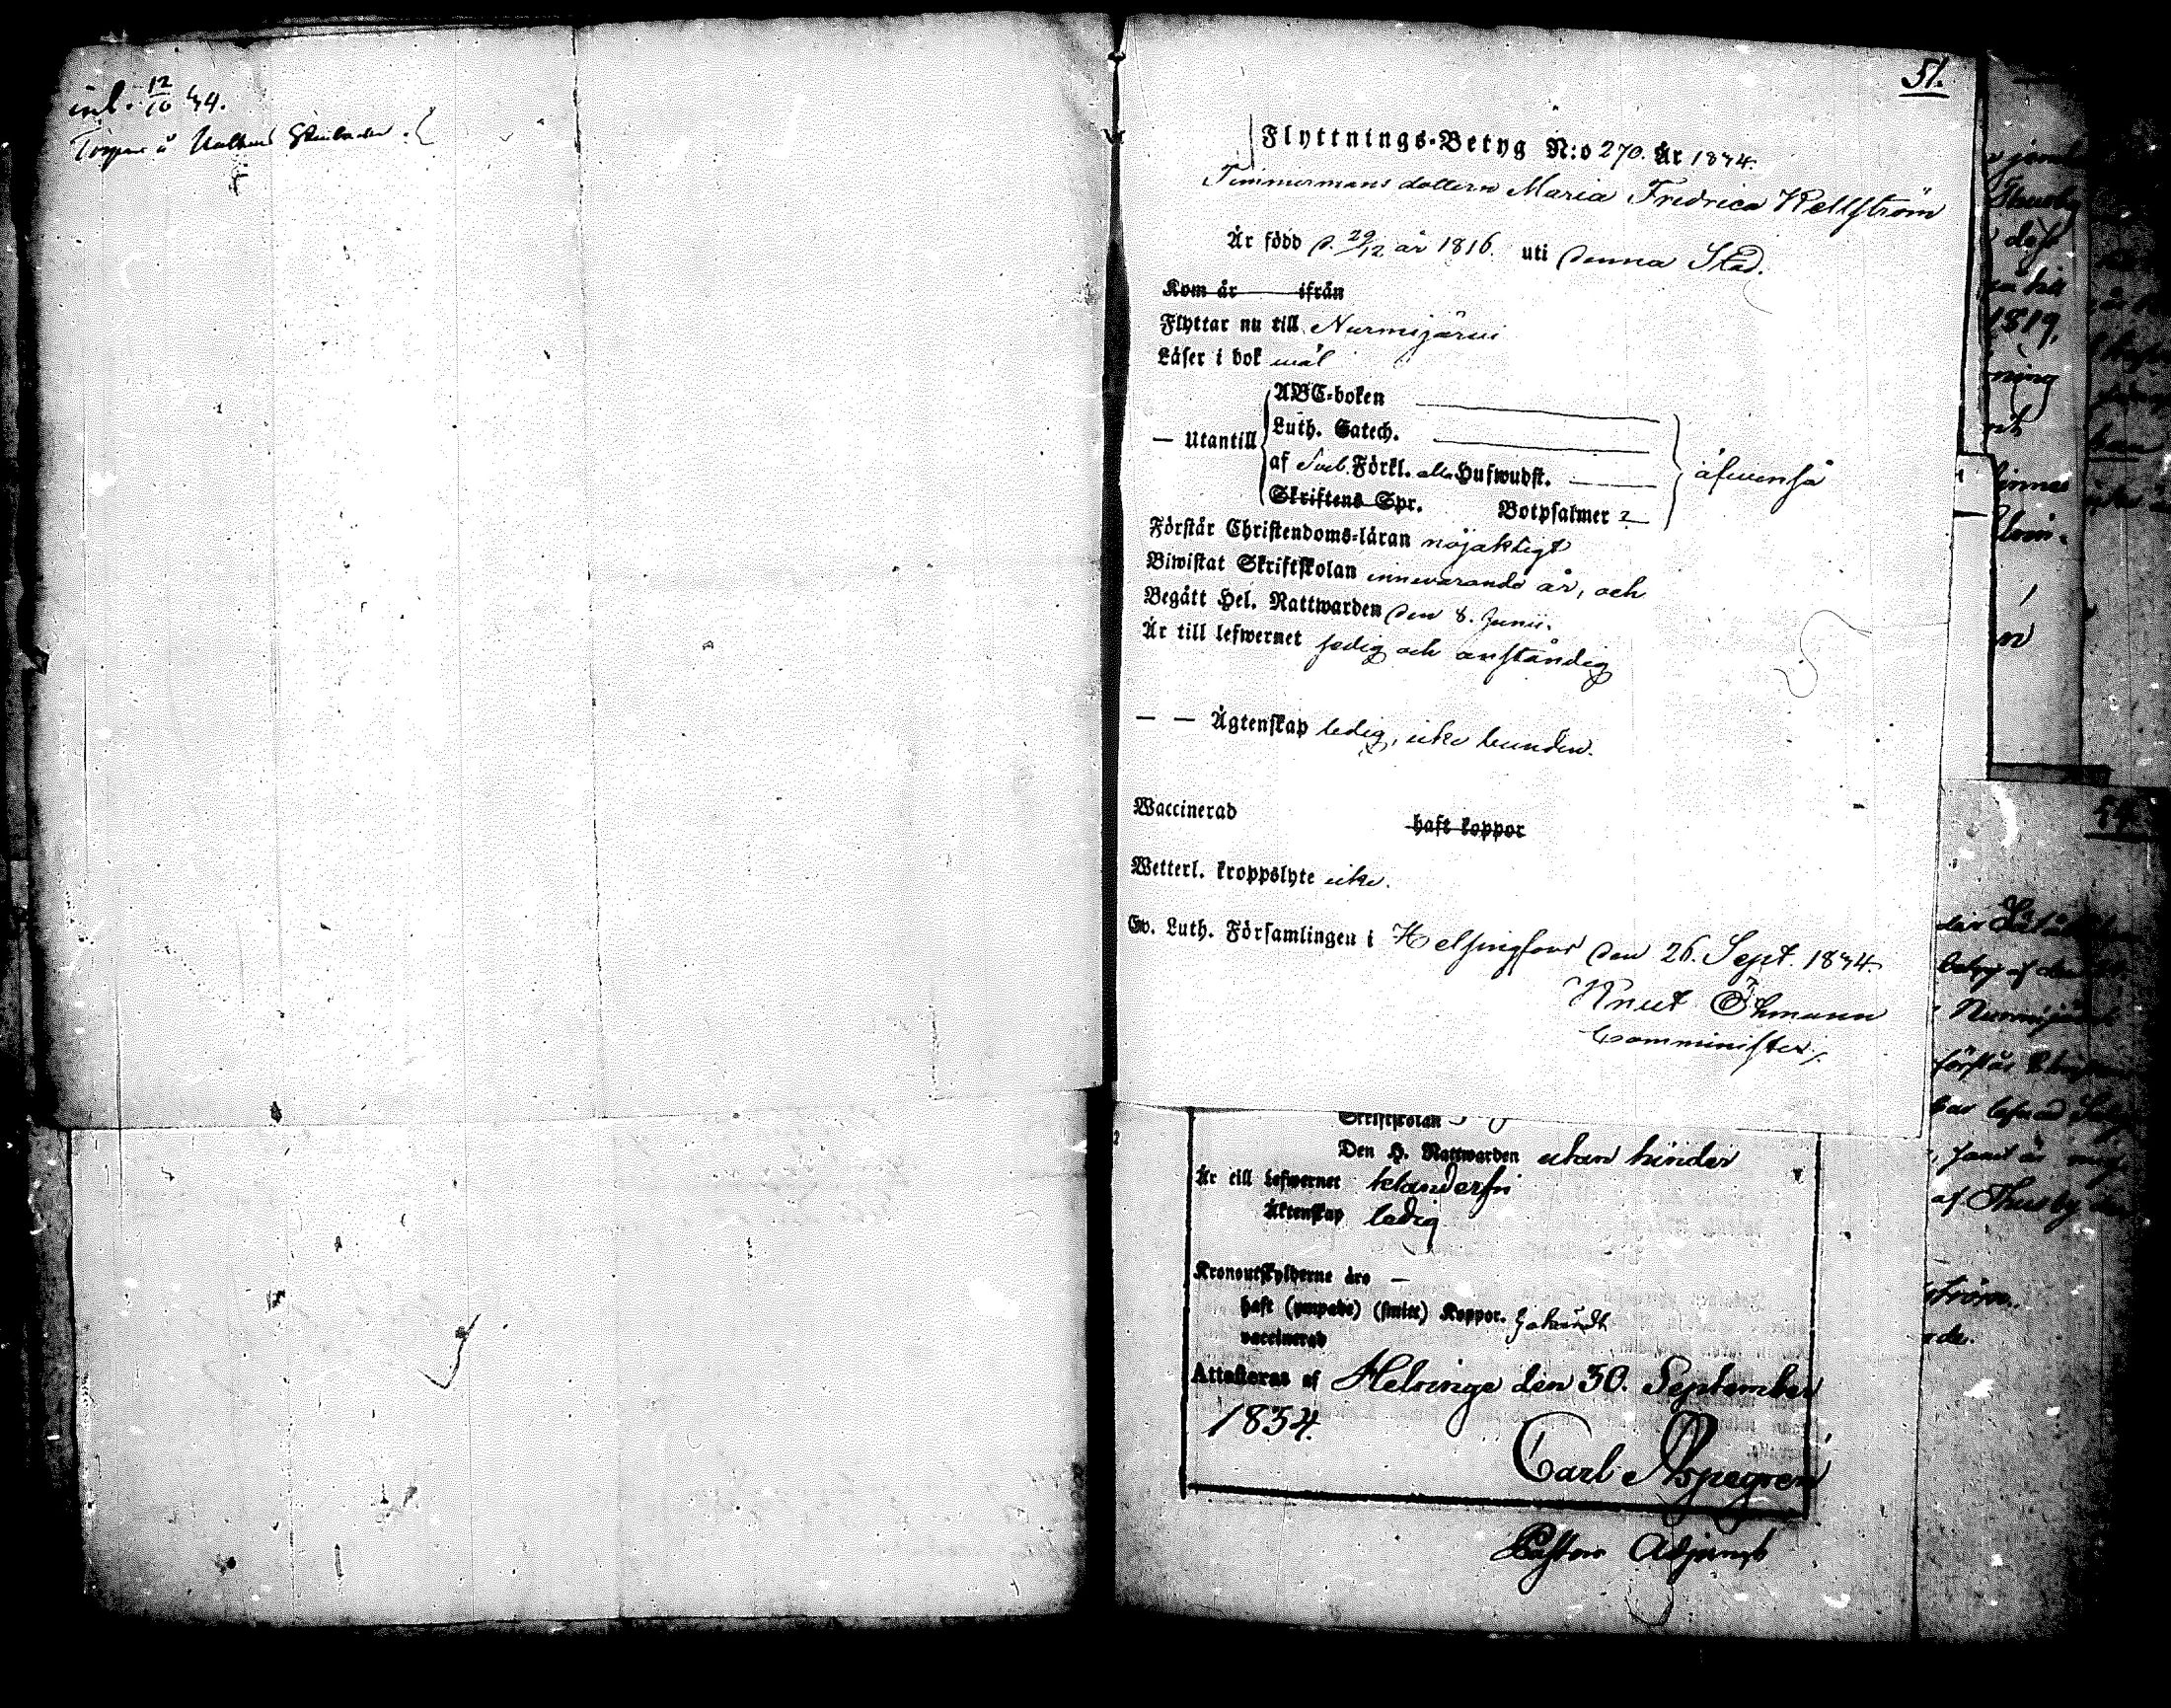 inl. 12/10 44.
51.
Flyttnings-Betyg N:o 270. år 1844.
Timmermans dottern Maria Fredrica Kellström
Är född d. 29/12 år 1816. uti denna Stad.
Kom år ifrån
Flyttar nu till Nurmijärvi
Läser i bok wäl
ABC-boken
Luth. Catech.
— Utantill
af Sveb. Förkl. alla Hufwudst.
äfwenså
Skriftens Spr. Botpsalmer 2
Förstår Christendoms-läran nöjaktigt
Biwistat Skriftskolan innewarande år, och
Begått Hel. Nattwarden den 8. Junii.
Är till lefwernet sedig och anständig
— — Ägtenskap ledig, icke bunden.
Waccinerad haft koppor
Wetterl. kroppslyte icke.
Ew. Luth. Församlingen i Helsingfors den 26. Sept. 1844.
Knut Öhmann
Comminister
Skriftskolan
Den H. Nattwarden utan hinder
Är till Lefwernet klanderfri
Äktenskap ledig
Kronoutskylderne äro —
haft (ympade) (smitt) Koppor.
vaccinerad
Attesteras af Helsinge den 30. September
1854.
Carl Aspegren
Pastors Adjunct
Thusby
1819,
ning
Nurmijärvi
förstår
af Thusby
ström.